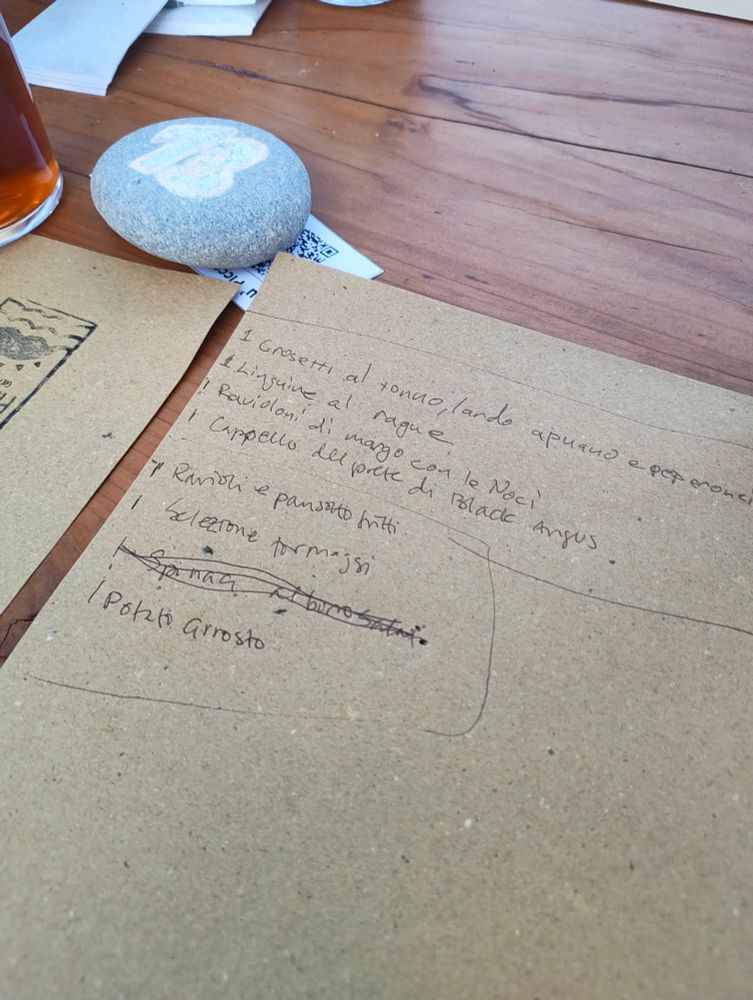 1 Crosetti al tonno, lardo apuano e peperonci
1 Linguine al rague
1 Ravioloni di margo con le Noci
1 Cappello del prete di Black Angus
1 Ravioli e pansotto fritti
1 Selezione formaggi
1 Spinaci al burro
1 Potato Arrosto